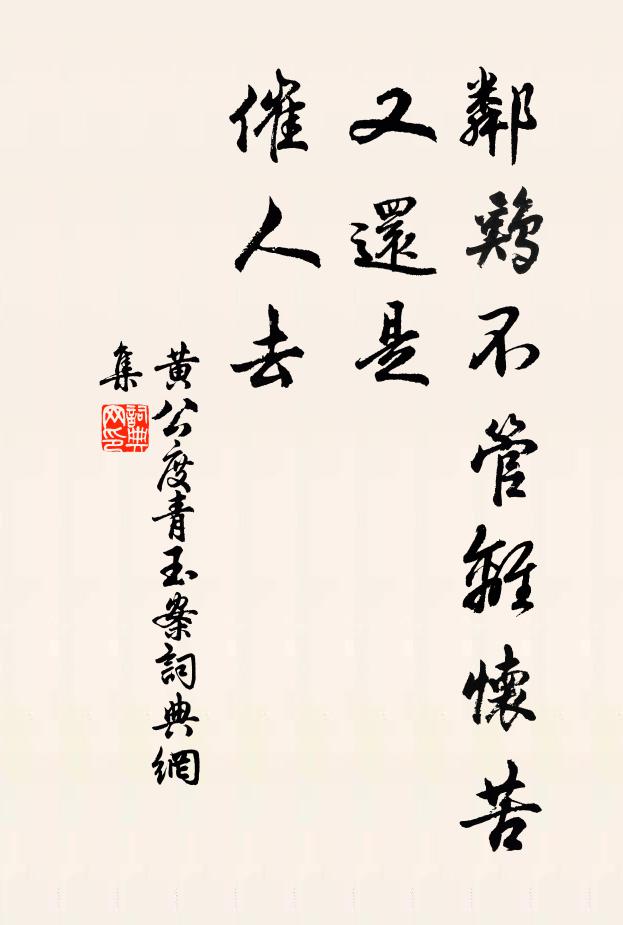 鄰鷄不管離懷苦
又還是
催人去
黃公度青玉案詞典網
集
詞典
网印